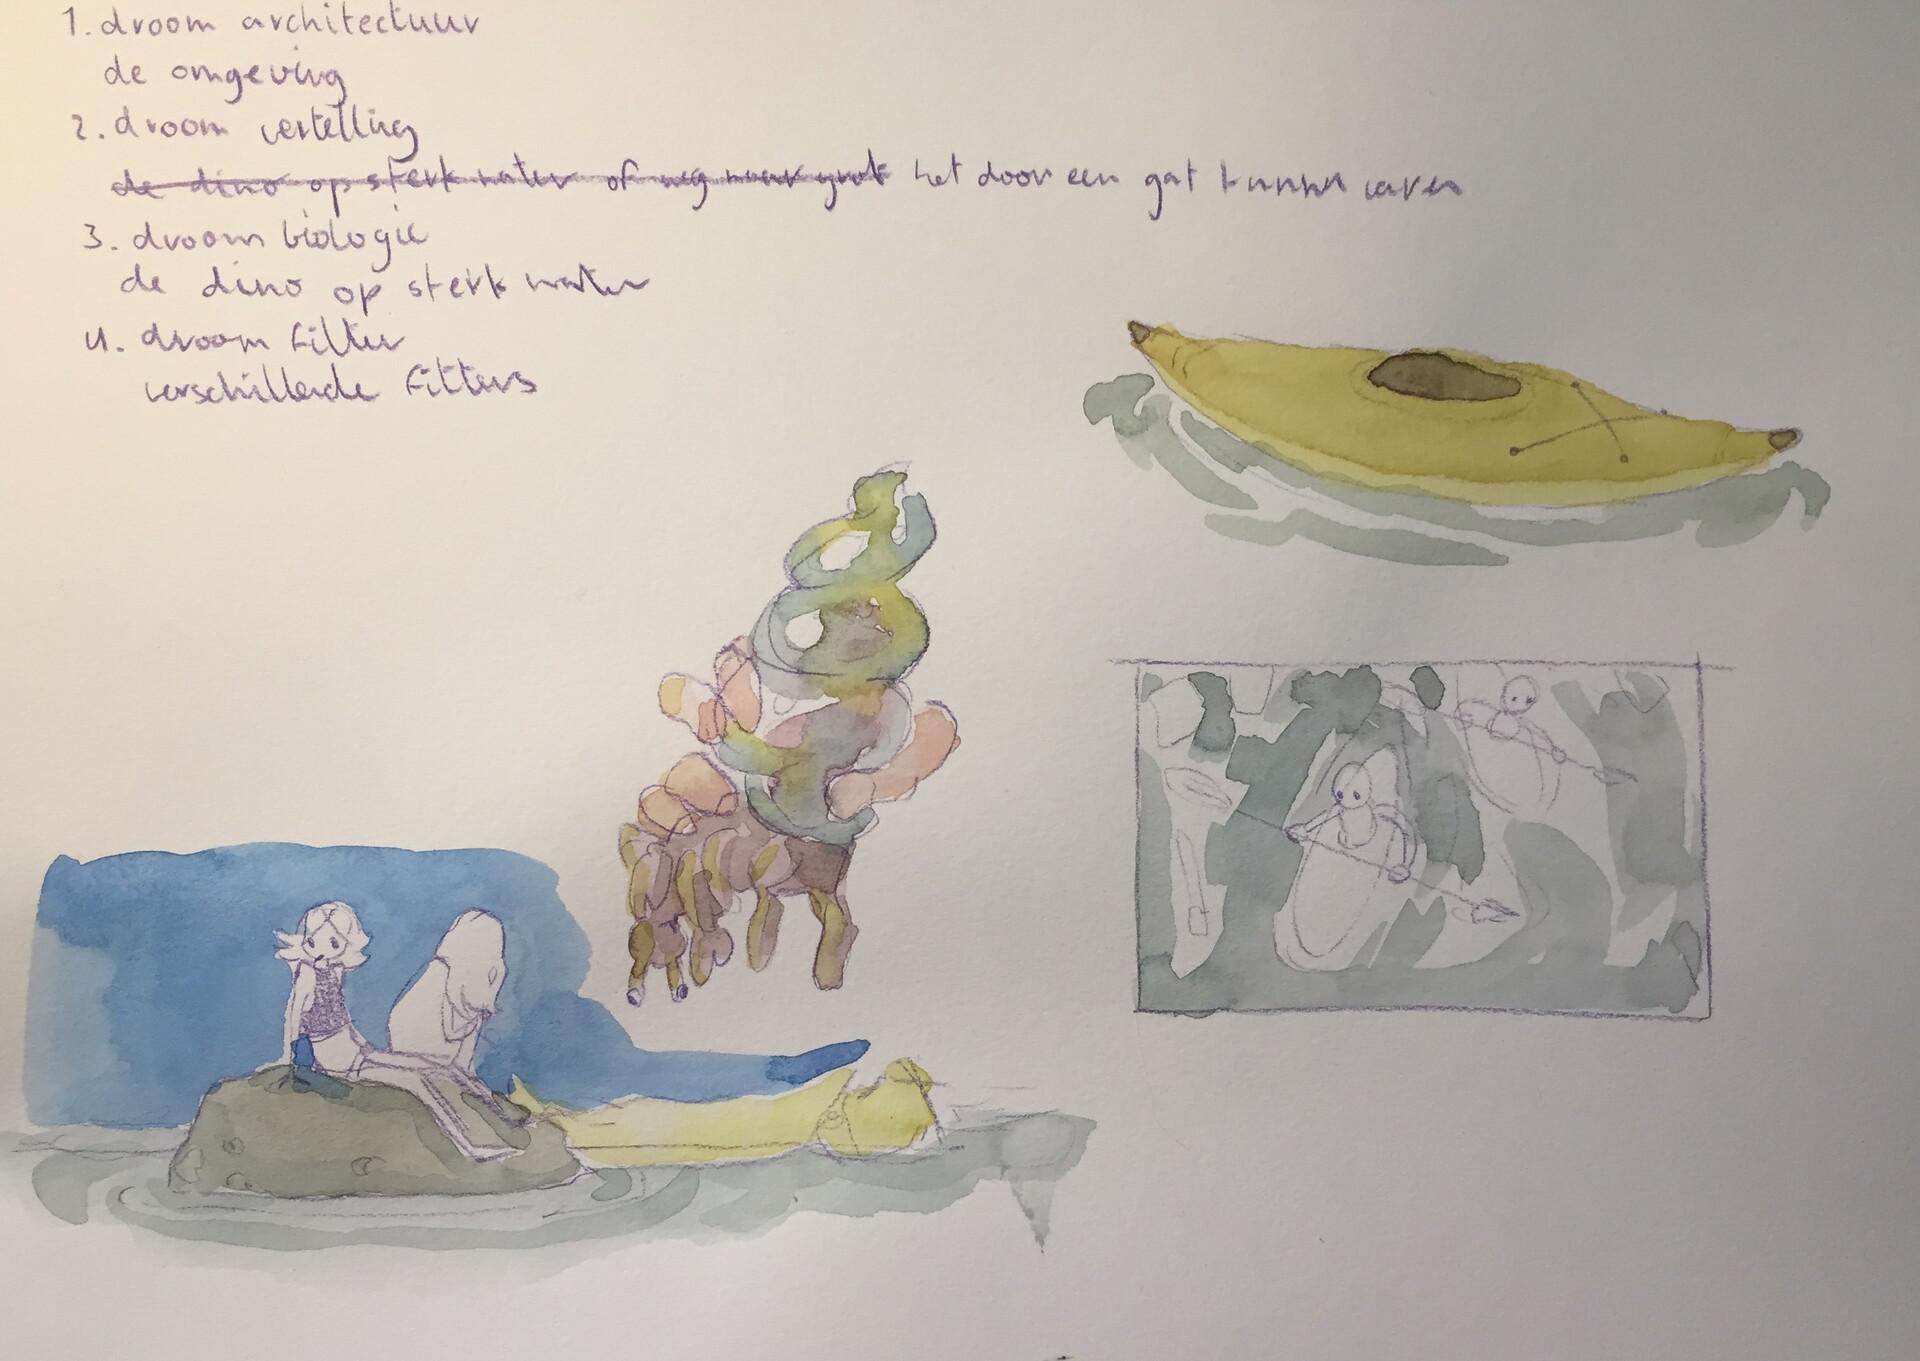 1. droom architectuur
de omgeving
2. droom vertelling
de dino op sterk water of weg naar grot het door een gat kunnen varen
3. droom biologie
de dino op sterk water
4. droom filter
verschillende filters